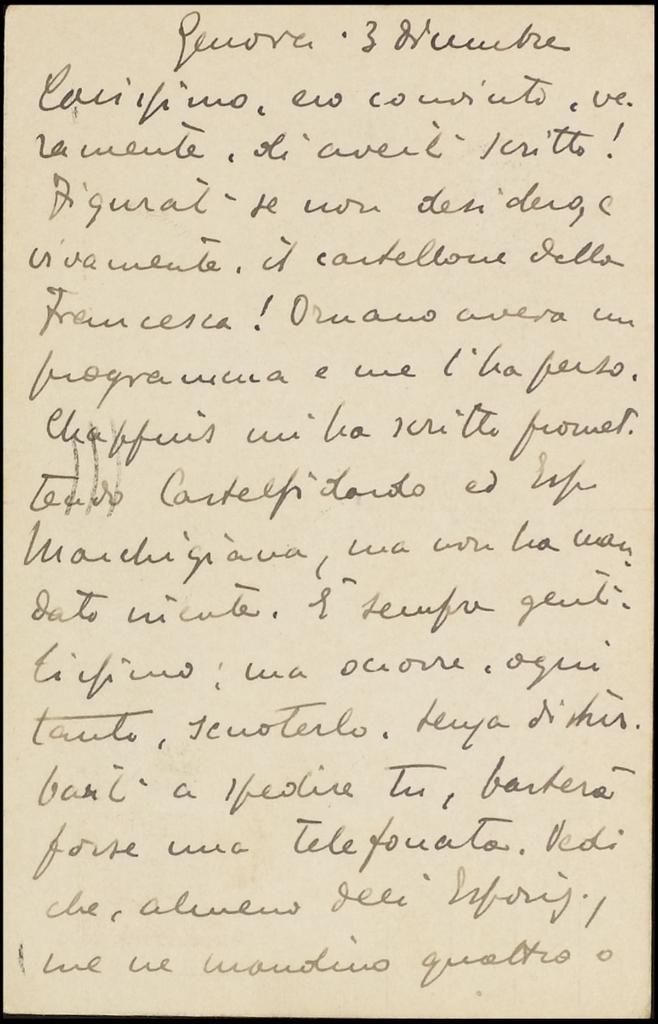 Genova . 3 dicembre
Carissimo, ero convinto, ve-
ramente, di averti scritto!
Figurati se non desidero, e
vivamente, il cartellone della
Francesca! Ornano aveva un
programma e me l'ha perso.
Chappuis mi ha scritto promet-
tendo Castelfidardo ed Esp
Marchigiana, ma non ha man-
dato niente. È sempre genti-
lissimo; ma occorre, ogni
tanto, scuoterlo. Senza distur-
barti a spedire tu, basterà
forse una telefonata. Vedi
che, almeno dell' Esposiz.,
me ne mandino quattro o